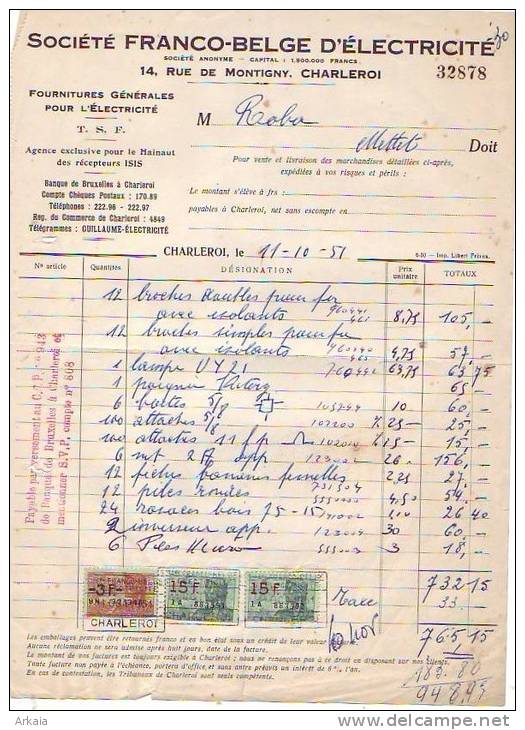 SOCIÉTÉ FRANCO-BELGE D'ÉLECTRICITÉ
SOCIÉTÉ ANONYME — CAPITAL : 1.500.000 FRANCS
14, RUE DE MONTIGNY, CHARLEROI
32878
FOURNITURES GÉNÉRALES
POUR L'ÉLECTRICITÉ
T. S. F.
Agence exclusive pour le Hainaut
des récepteurs ISIS
Banque de Bruxelles à Charleroi
Compte Chèques Postaux : 170.89
Téléphones : 222.96 - 222.97
Reg. du Commerce de Charleroi : 4849
Télégrammes : GUILLAUME-ÉLECTRICITÉ
M
Mettet Doit
Pour vente et livraison des marchandises détaillées ci-après,
expédiées à vos risques et périls :
Le montant s'élève à frs :
payables à Charleroi, net sans escompte en
CHARLEROI, le 11-10-51
6-50 - Imp. Libert Frères.
N° article Quantités DÉSIGNATION Prix unitaire TOTAUX
12 broches doubles pour fer
avec isolants 8,75 105,-
12 broches simples pour fer
avec isolants 4,75 57,-
1 lampe UY21 63,75 63 75
1 65,-
6 boîtes 5/8 10 60,-
100 attaches 5/8 102200 % 25 25,-
100 attaches 11 fp % 15 15,-
6 app 26 156,-
12 fiches bananes femelles 2,25 27,-
12 piles rondes 4,50 54,-
24 rosaces bois 75-15 1,10 26 40
2 inverseur app. 30 60,-
6 3 18,-
Payable par versement au C. P. 
de Banque de Bruxelles à Charleroi et
mentionner S.V.P. compte n° 808
-3F-
15F
1A
15F
1A
CHARLEROI
732 15
Taxe 33
765 15
183 80
948,95
Les emballages peuvent être retournés franco et en bon état sous un crédit de leur valeur
Aucune réclamation ne sera admise après huit jours, date de la facture.
Le montant de nos factures est toujours exigible à Charleroi ; nous ne renonçons pas à ce droit en disposant sur nos clients.
Toute facture non payée à l'échéance, portera d'office et sans autre préavis un intérêt de 6%, l'an.
En cas de contestation, les Tribunaux de Charleroi sont seuls compétents.
Arkaia
www.delcampe.net